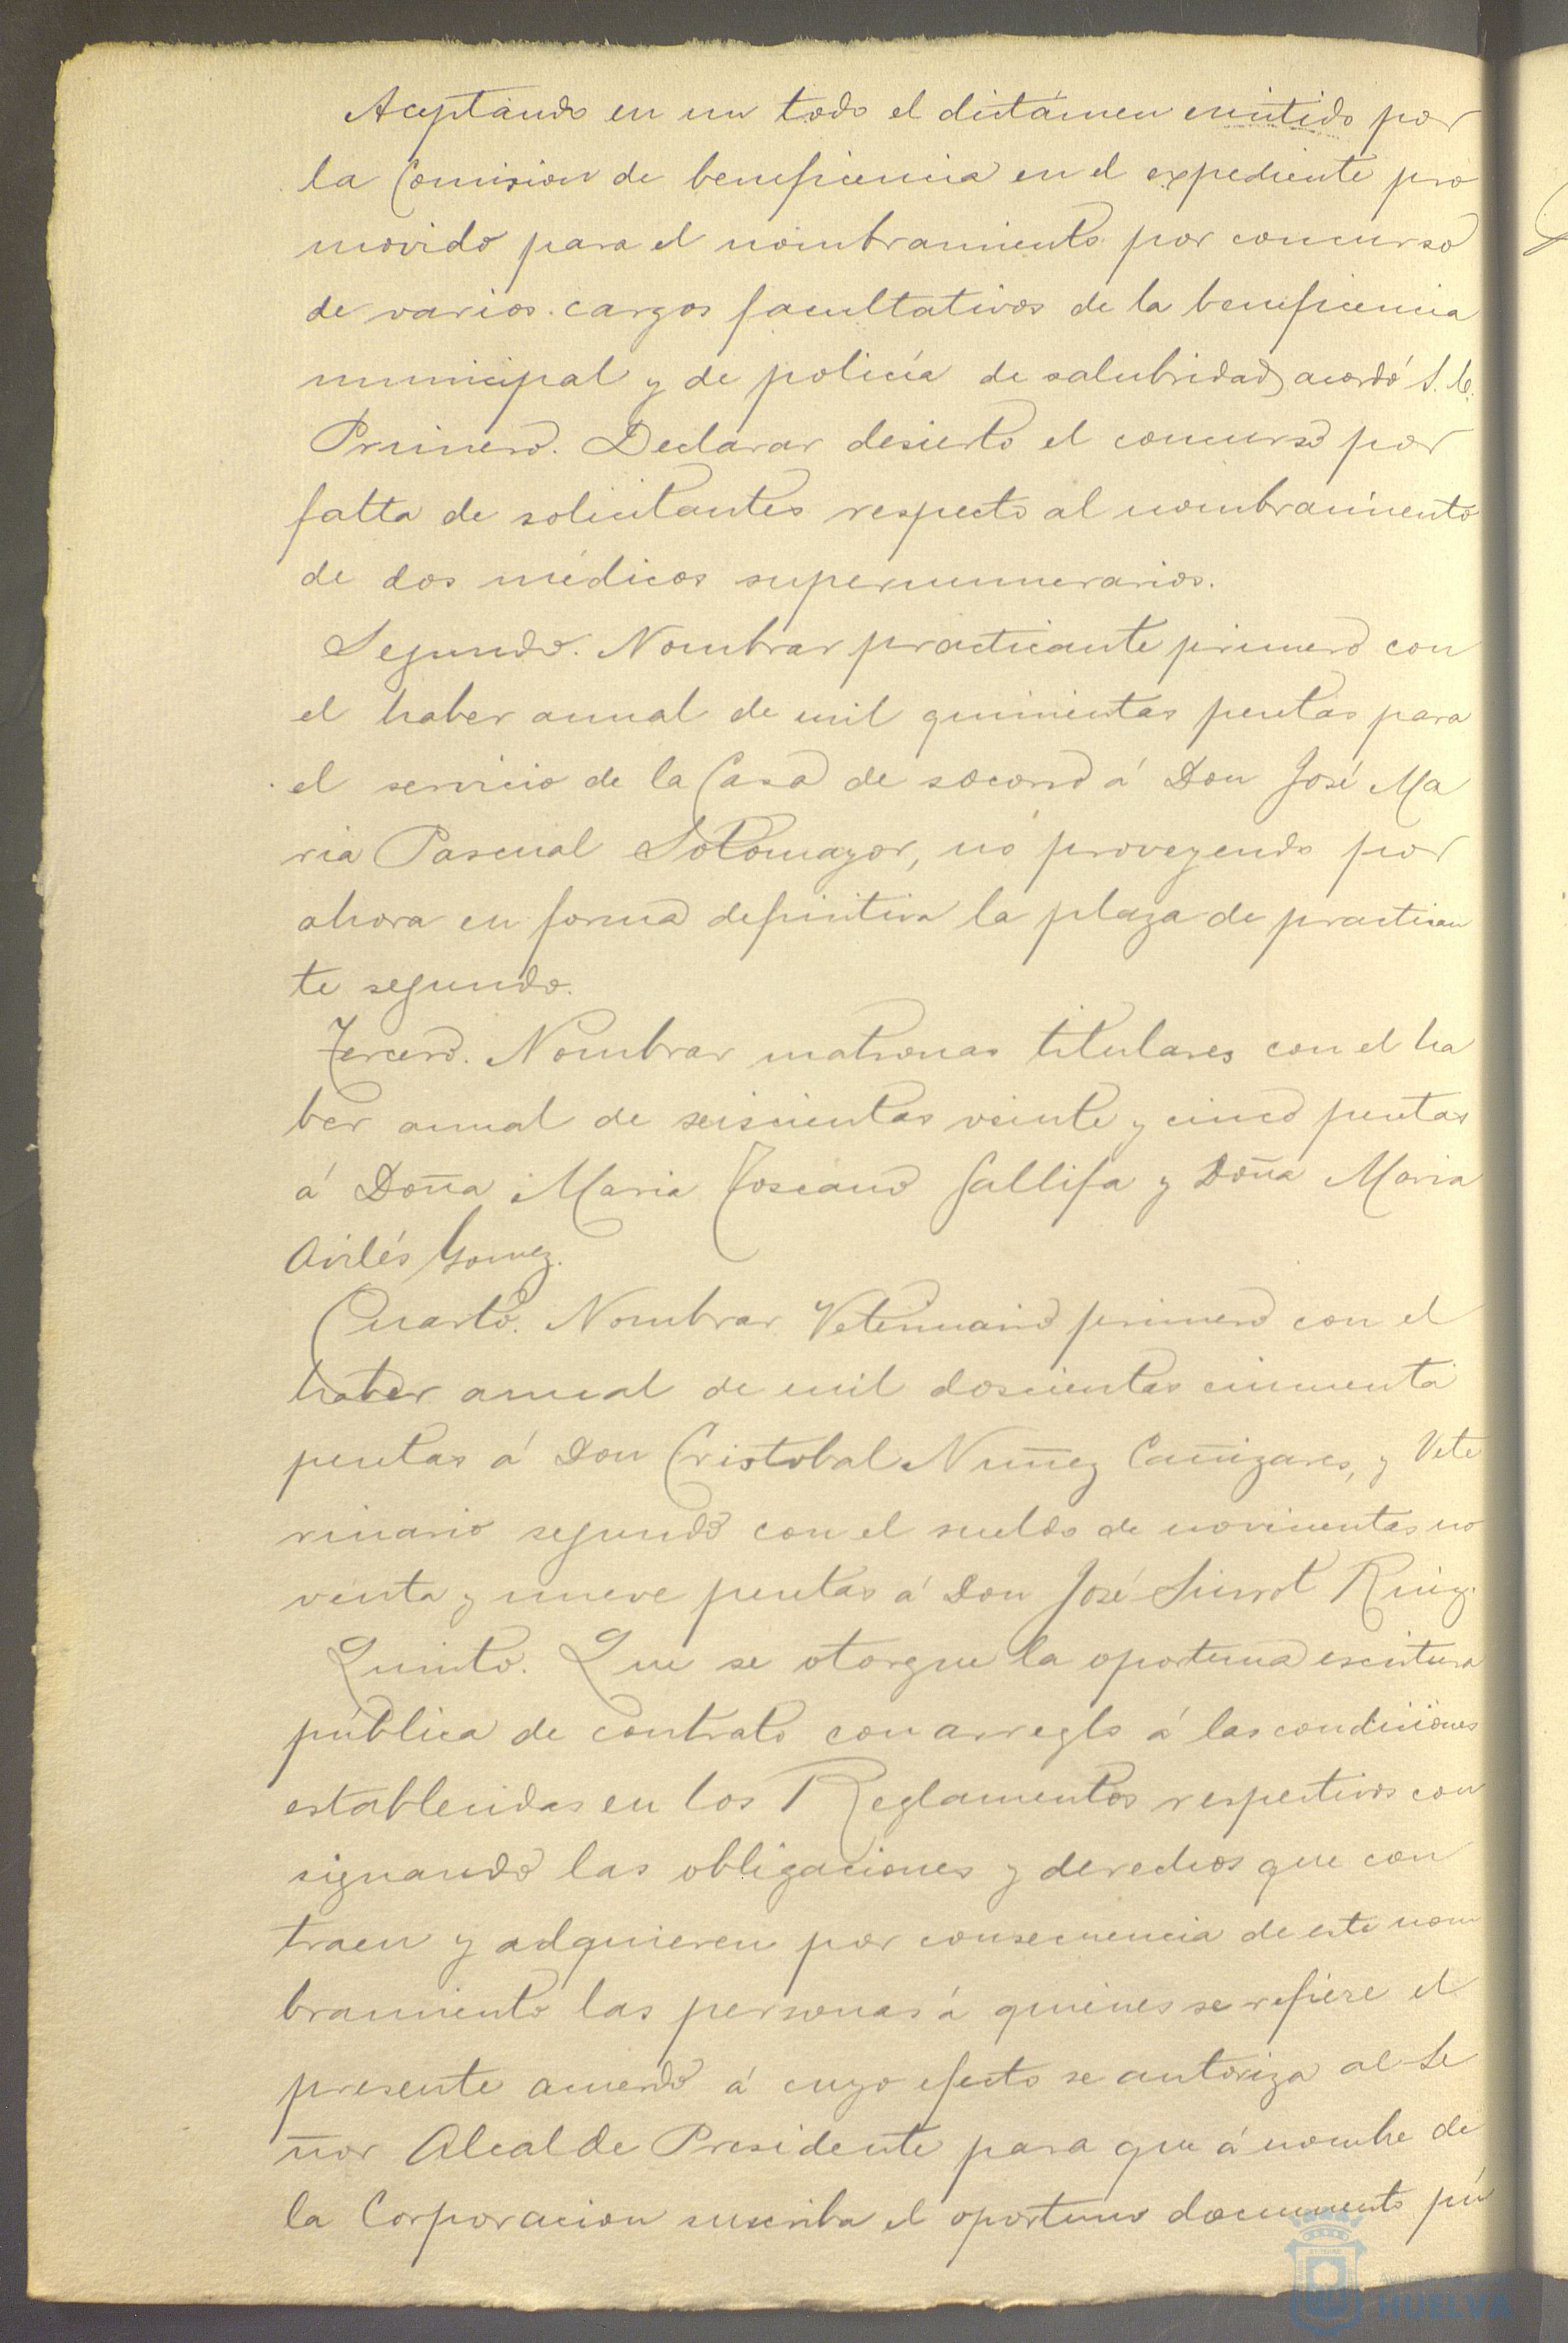 Aceptando en un todo el dictámen emitido por
la Comision de beneficencia en el expediente pro
movido para el nombramiento por concurso
de varios cargos facultativos de la beneficencia
municipal y de policía de salubridad, acordó S. E.
Primero. Declarar desierto el concurso por
falta de solicitantes respecto al nombramiento
de dos médicos supernumerarios.
Segundo. Nombrar practicante primero con
el haber anual de mil quinientas pesetas para
el servicio de la Casa de socorro á Don José Ma
ria Pascual Sotomayor, no proveyendo por
ahora en forma definitiva la plaza de practican
te segundo.
Tercero. Nombrar matronas titulares con el ha
ber anual de seiscientas veinte y cinco pesetas
á Doña Maria Toscano Gallifa y Doña Maria
Avilés Gomez.
Cuarto. Nombrar Veterinario primero con el
haber anual de mil doscientas cincuenta
pesetas á Don Cristobal Nuñez Cañizares, y Vete
rinario segundo con el sueldo de novecientas no
venta y nueve pesetas á Don José Ruiz.
Quinto. Que se otorgue la oportuna escritura
pública de contrato con arreglo á las condiciones
establecidas en los Reglamentos respectivos con
signando las obligaciones y derechos que con
traen y adquieren por consecuencia de este nom
bramiento las personas á quienes se refiere el
presente acuerdo á cuyo efecto se autoriza al Se
ñor Alcalde Presidente para que á nombre de
la Corporacion suscriba el oportuno documento pú
HUELVA